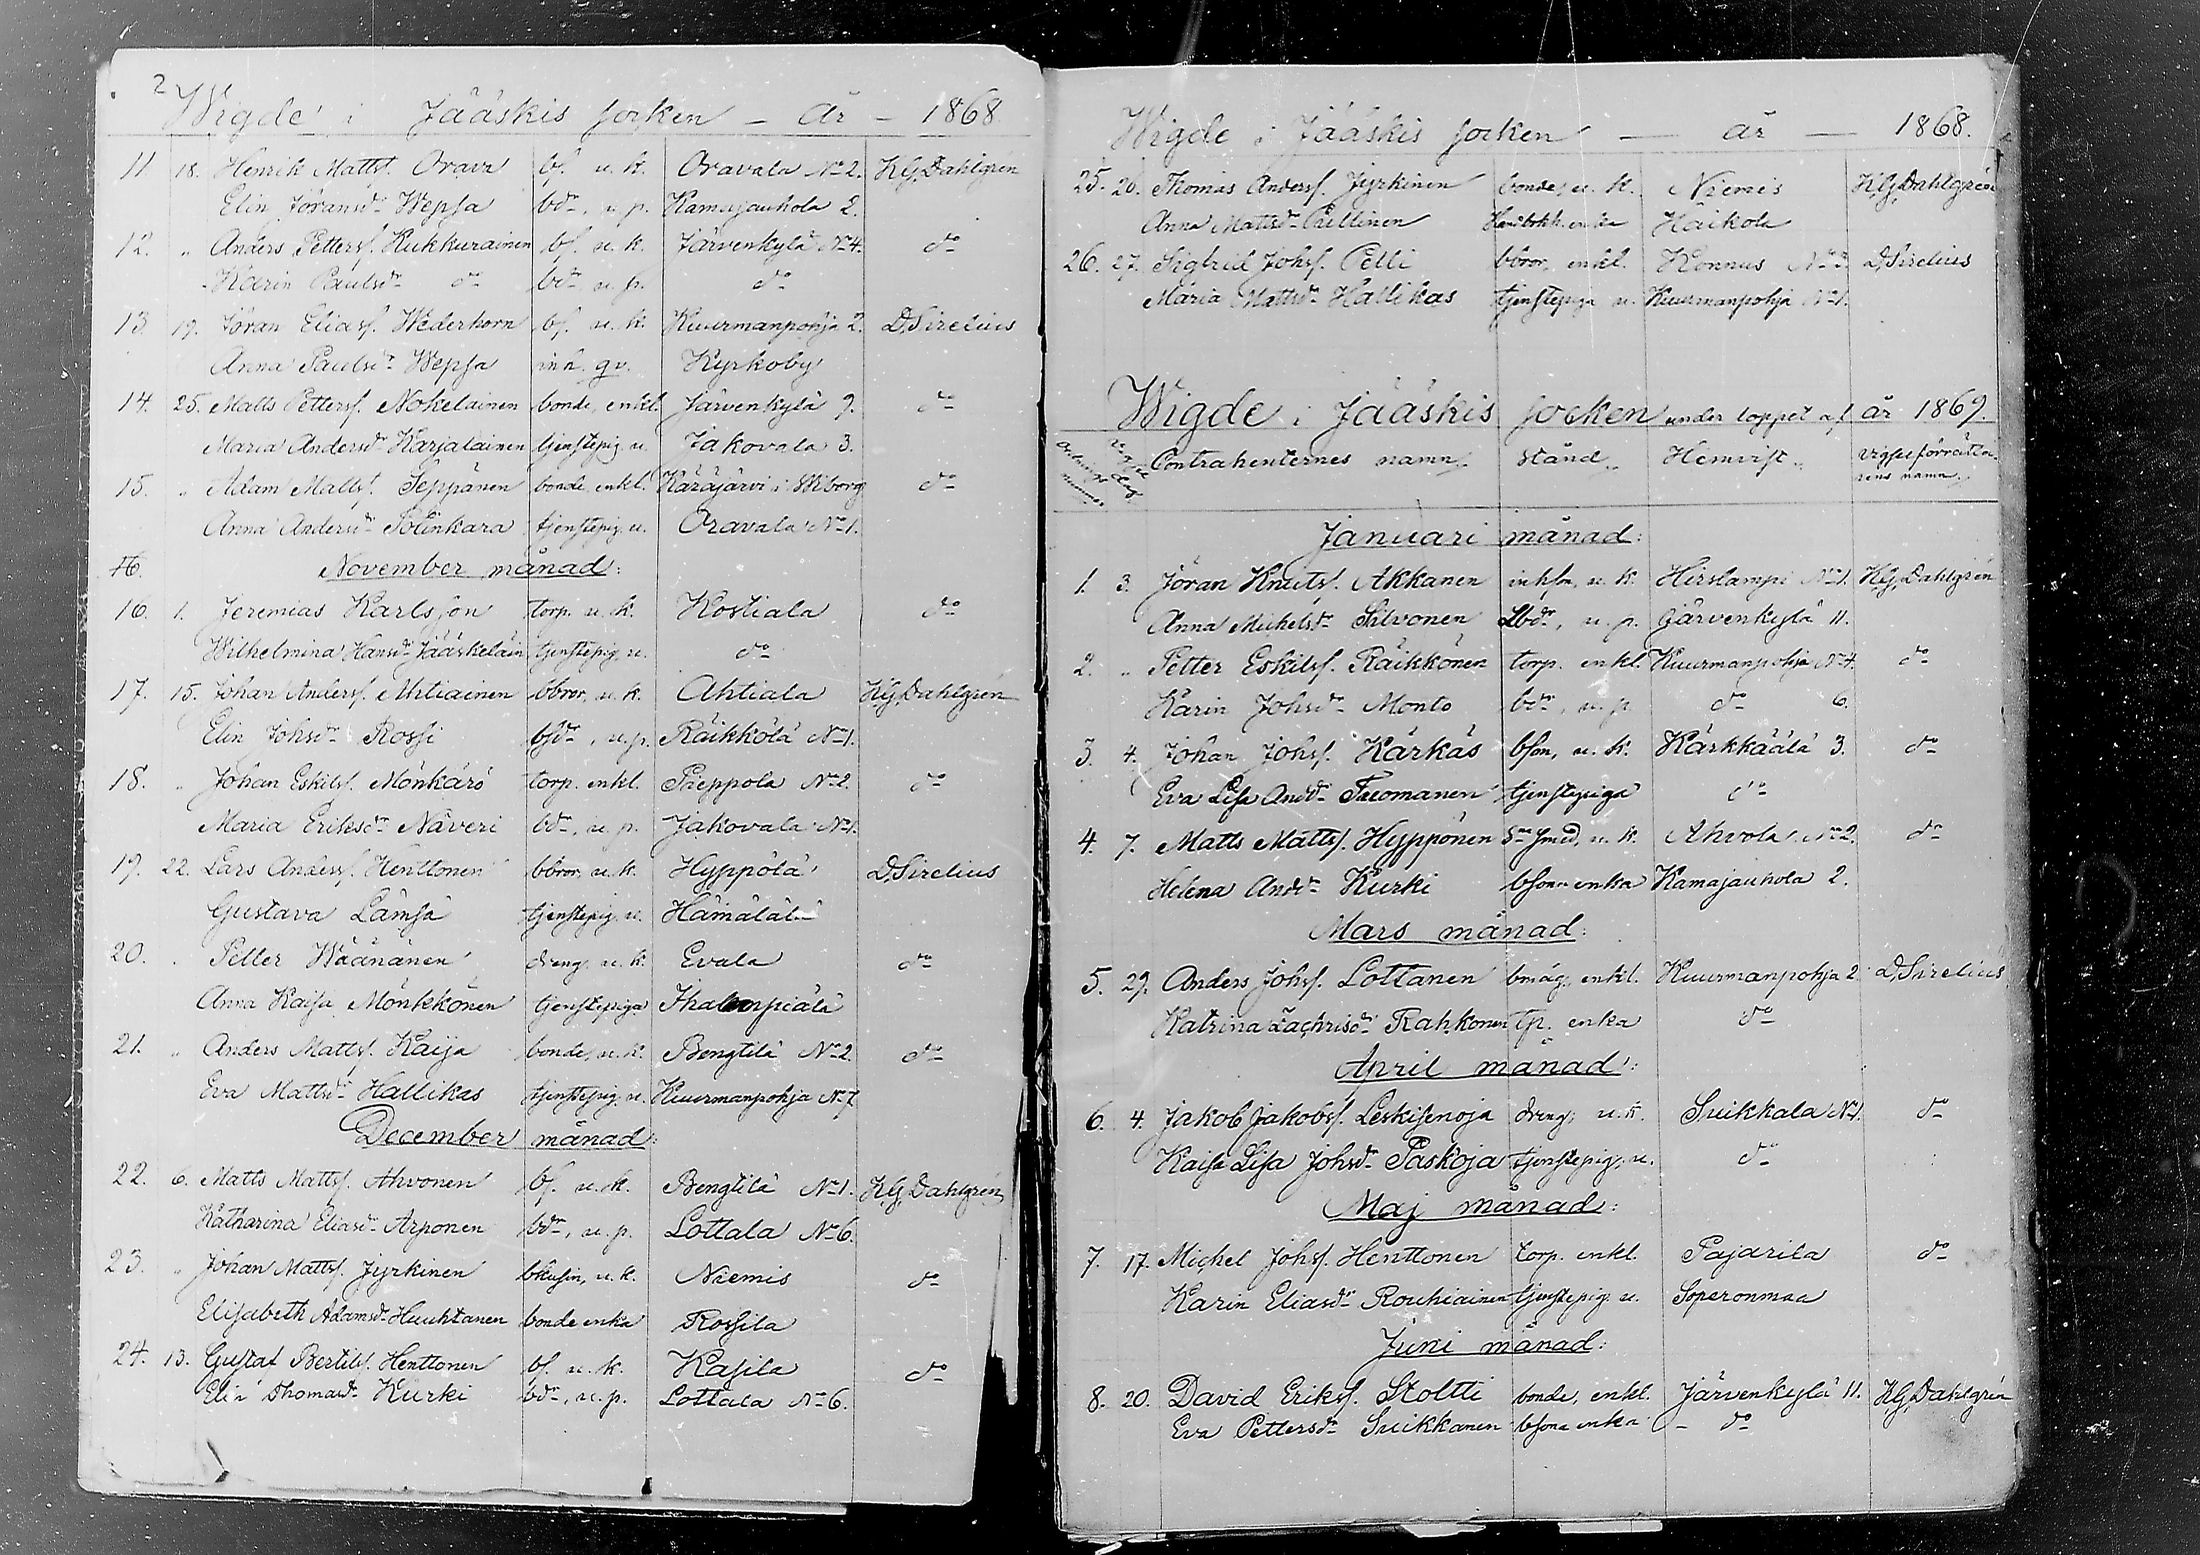 2
Wigde i Jääskis socken - år - 1868.
11 18. Henrik Mattss. Orava bs. u. k. Oravala No 2. K.G. Dahlgrén
Elin Jöransdr Wepsä bdr, u. p. Kamajaukola 2.
12. " Anders Petterss. Kukkurainen bs. u. k. Järvenkylä No 4. do
Karin Paulsdr do bdr, u. p. do
13. 19. Jöran Eliass. Wederhorn bs. u. k. Kuurmanpohja 2. D. Sirelius
Anna Paulsdr Wepsä inh. qv. Kyrkoby
14. 25. Matts Petterss. Nokelainen bonde, enkl. Järvenkylä 9. do
Maria Andersdr Karjalainen tjenstepig. u. Jakovala 3.
15. " Adam Mattss. Seppänen bonde, enkl. Käräjärvi i Wiborg do
Anna Andersdr Solinkara tjenstepig. u. Oravala No 1.
16. November månad:
16. 1. Jeremias Karlsson torp. u. k. Kostiala do
Wilhelmina Hansdr Jääskeläin tjenstepig. u. do
17. 15. Johan Anderss. Ahtiainen bbror, u. k. Ahtiala K.G. Dahlgrén
Elin Johsdr Rossi bsdr, u. p. Räikkölä No 1.
18. " Johan Eskilss. Mönkärö torp. enkl. Päeppola No 2. do
Maria Eriksdr Näveri bdr, u. p. Jakovala No 1.
19. 22. Lars Anderss. Henttonen bbror, u. k. Hyppölä D. Sirelius
Gustava Lämsä tjenstepig. u. Hämälälä
20. " Petter Wäänänen dreng. u. k. Evala do
Anna Kaisa Mönkkönen tjenstepiga
21. " Anders Mattss. Kaija bonde, u. k. Bengtilä No 2. do
Eva Mattsdr Hallikas tjenstepig. u. Kuurmanpohja No 7
December månad:
22. 6. Matts Mattss. Ahvonen bs. u. k. Bengtilä No 1. K.G. Dahlgrén
Katharina Eliasdr Arponen bdr, u. p. Lottala No 6.
23. " Johan Mattss. Jyrkinen bkusin, u. k. Niemis do
Elisabeth Adamsdr Huuhtanen bonde enka Rossila
24. 13. Gustaf Bertilss. Henttonen bs. u. k. Kasila do
Elin Thomasdr Kurki bdr, u. p. Lottala No 6.
Wigde i Jääskis socken — år — 1868.
25. 26. Thomas Anderss. Jyrkinen bonde, u. k. Niemis K.G. Dahlgrén
Anna Mattsdr Pullinen enka Häikola
26. 27. Sigfrid Johss. Pelli bbror, enkl. Konnus No 3. D. Sirelius
Maria Mattsdr Hallikas tjenstepiga u. Kuurmanpohja No 1.
Wigde i Jääskis socken under loppet af år 1869.
Ordnings nummer Vigsel dag Contrahenternes namn. Stånd. Hemvist. Vigselförrätta-
rens namn.
Januari månad:
1. 3. Jöran Knutss. Akkanen inhson, u. k. Hirslampi No 1. K.G. Dahlgrén
Anna Michelsdr Silvonen bdr, u. p. Järvenkylä 11.
2. " Petter Eskilss. Räikkönen torp. enkl. Kuurmanpohja No 4. do
Karin Johsdr Monto bdr, u. p. do 6.
3. 4. Johan Johss. Kärkäs bson, u. k. Kärkkäälä 3. do
Eva Lisa Andr Tuomanen tjenstepiga do
4. 7. Matts Mattss. Hyppönen Sn smed, u. k. Ahvola No 2. do
Helena Andr Kurki bsons enka Kamajaukola 2.
Mars månad:
5. 29. Anders Johss. Lottanen bmåg, enkl. Kuurmanpohja 2 D. Sirelius
Katrina Zachrisdr Rahkonen tp. enka do
April månad:
6. 4. Jakob Jakobss. Leskisenoja dreng, u. k. Suikkala No 1. do
Kaisa Lisa Johsdr Paskoja tjenstepig. u. do
Maj månad:
7. 17. Michel Johss. Henttonen torp. enkl. Pajarila do
Karin Eliasdr Rouhiainen tjenstepig. u. Soperonmaa
Juni månad:
8. 20. David Erikss. Stoltti bonde, enkl. Järvenkylä 11. K.G. Dahlgrén
Eva Pettersdr Suikkanen bsons enka - do